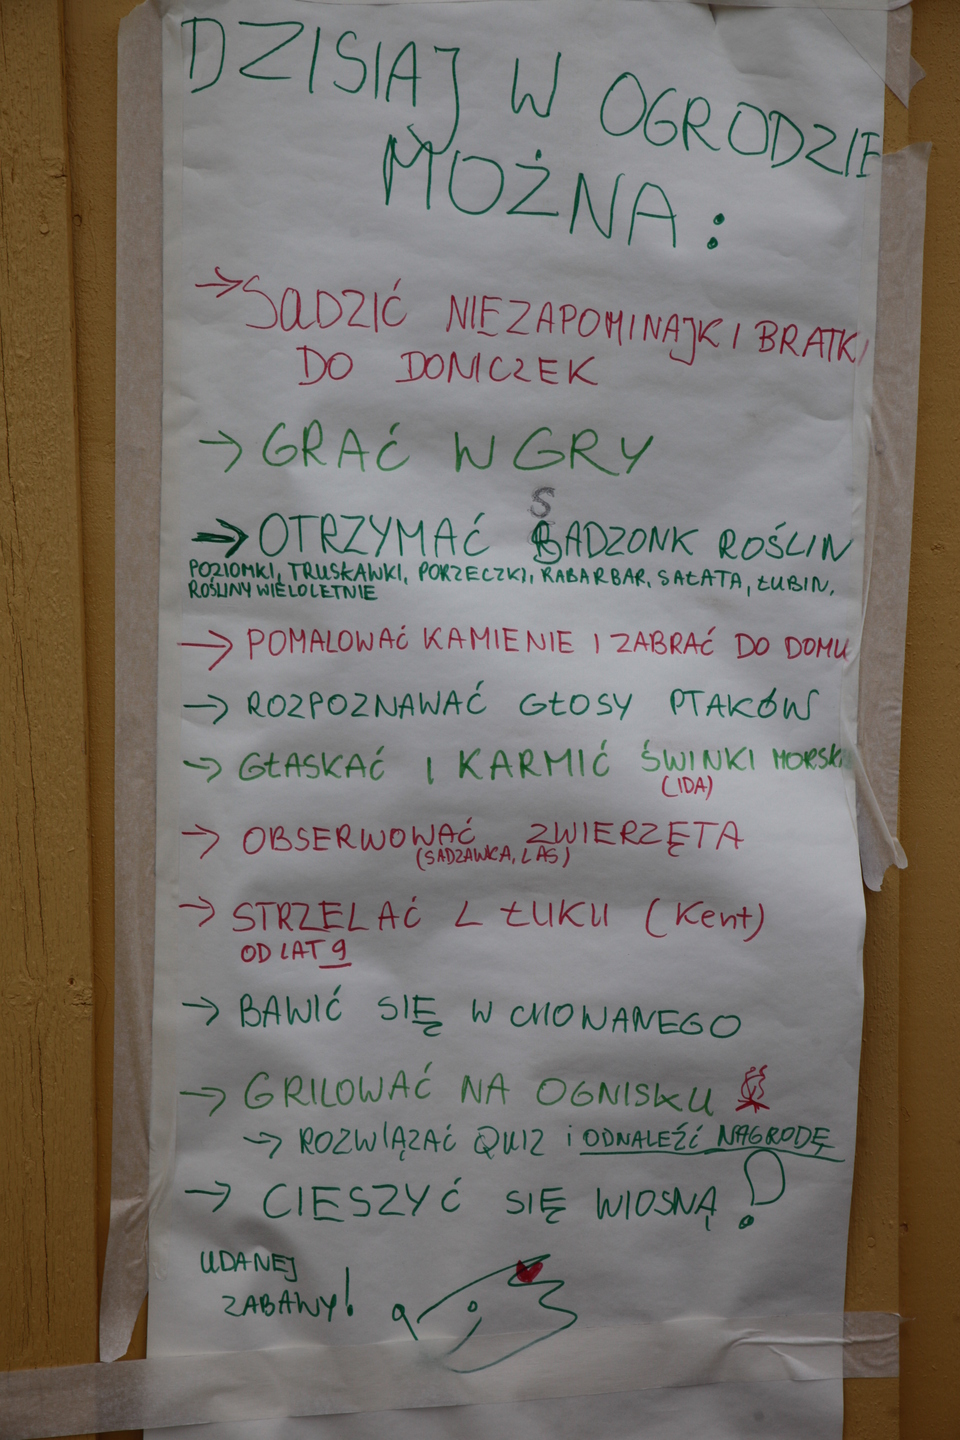 DZISIAJ W OGRODZIE
MOŻNA:
→ SADZIĆ NIEZAPOMINAJKI I BRATKI
DO DONICZEK
→ GRAĆ W GRY
→ OTRZYMAĆ SADZONK ROŚLIN
POZIOMKI, TRUSKAWKI, PORZECZKI, RABARBAR, SAŁATA, ŁUBIN,
ROŚLINY WIELOLETNIE
→ POMALOWAĆ KAMIENIE I ZABRAĆ DO DOMU
→ ROZPOZNAWAĆ GŁOSY PTAKÓW
→ GŁASKAĆ I KARMIĆ ŚWINKI MORSKI
(IDA)
→ OBSERWOWAĆ ZWIERZĘTA
(SADZAWKA, LAS)
→ STRZELAĆ Z ŁUKU (Kent)
OD LAT 9
→ BAWIĆ SIĘ W CHOWANEGO
→ GRILOWAĆ NA OGNISKU
→ ROZWIĄZAĆ QUIZ i ODNALEŹĆ NAGRODĘ
→ CIESZYĆ SIĘ WIOSNĄ!
UDANEJ
ZABAWY!